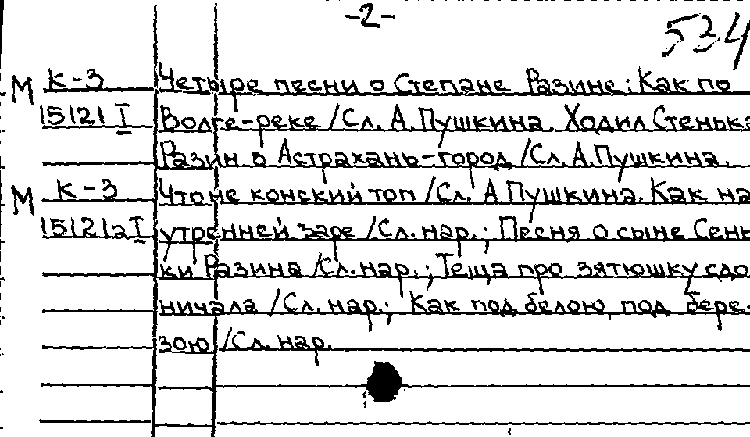 -2-
534
М К-3 Четыре песни о Степане Разине: Как по
15121 I Волге-реке /Сл. А. Пушкина. Ходил Стенька
Разин в Астрахань-город /Сл. А. Пушкина.
М К-3 Что не конский топ /Сл. А Пушкина. Как на
15121а I утренней заре /Сл. нар.; Песня о сыне Сень
ки Разина /Сл. нар.; Теща про зятюшку сдо
ничала /Сл. нар.; Как под белою под бере-
зою /Сл. нар.